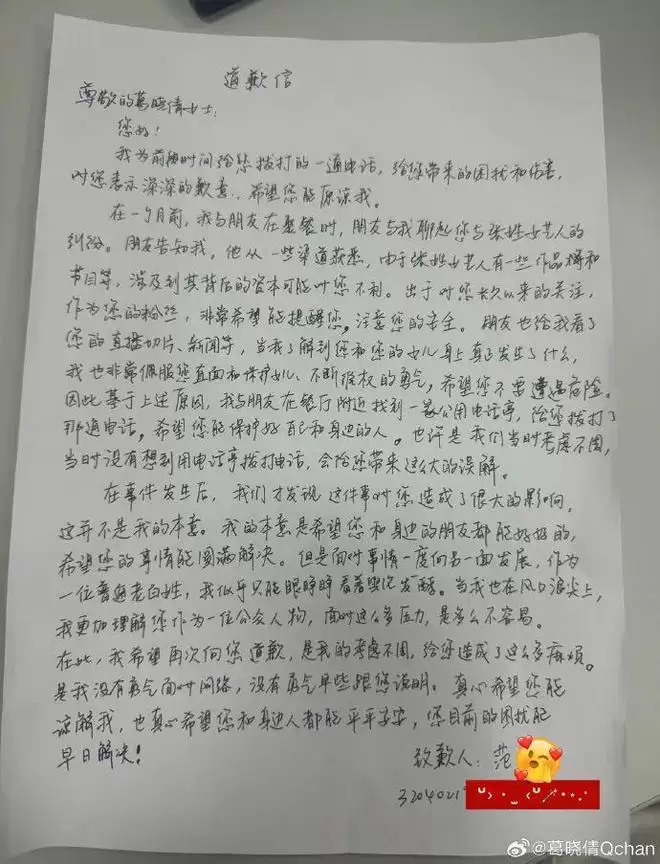 道歉信
尊敬的葛晓倩女士:
您好!
我为前段时间给您拨打的一通电话,给您带来的困扰和伤害,
对您表示深深的歉意、希望您能原谅我。
在一个月前,我与朋友在聚餐时,朋友与我聊起您与张姓女艺人的
纠纷。朋友告知我,他从一些渠道获悉,由于张姓女艺人有一些作品播和
节目等,涉及到其背后的资本可能对您不利。出于对您长久以来的关注,
作为您的粉丝,非常希望能提醒您,注意您的安全。朋友也给我看了
您的直播切片、新闻等,当我了解到您和您的女儿身上真正发生了什么,
我也非常佩服您直面和保护女儿、不断维权的勇气,希望您不要遭遇危险。
因此基于上述原因,我与朋友在餐厅附近找到一家公用电话亭,给您拨打了
那通电话。希望您能保护好自己和身边的人。也许是我们当时考虑不周,
当时没有想到用电话亭拨打电话,会给您带来这么大的误解。
在事件发生后,我们才发现这件事对您造成了很大的影响,
这并不是我的本意。我的本意是希望您和身边的朋友都能好好的,
希望您的事情能圆满解决。但是面对事情一度向另一面发展,作为
一位普通老百姓,我似乎只能眼睁睁看着恶化发酵。当我也在风口浪尖上,
我更加理解您作为一位公众人物,面对这么多压力,是多么不容易。
在此,我希望再次向您道歉,是我的考虑不周,给您造成了这么多麻烦。
是我没有勇气面对网络,没有勇气早些跟您说明。真心希望您能
谅解我,也真心希望您和身边人都能平平安安,您目前的困扰能
早日解决!
致歉人:范
3204021
@葛晓倩Qchan